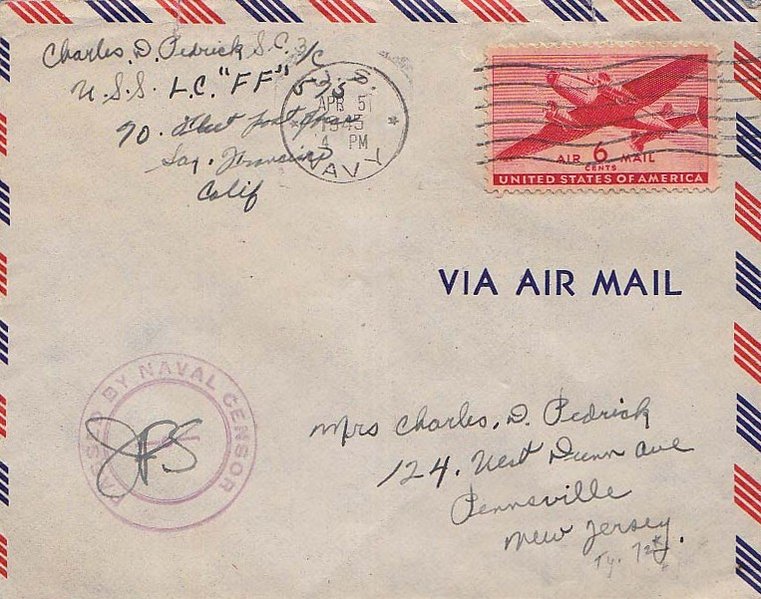 Charles. D. Pedrick S.C. 3/C
U.S.S. L.C. "FF" 573
90. Fleet Post Office
San. Francisco
Calif
U.S.
APR 5
1945
4 PM
NAVY
AIR 6 MAIL
CENTS
UNITED STATES OF AMERICA
VIA AIR MAIL
PASSED BY NAVAL CENSOR
JPS
Mrs Charles. D. Pedrick
124. West Dunn Ave
Pennsville
New Jersey.